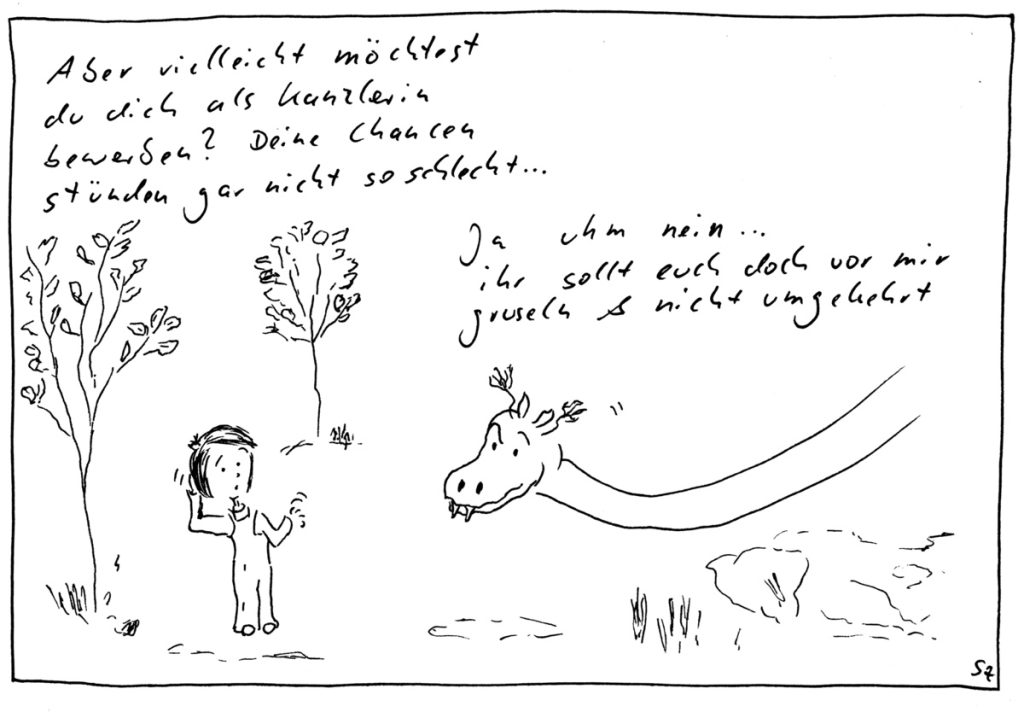 Aber vielleicht möchtest
du dich als Kanzlerin
bewerben? Deine Chancen
stünden gar nicht so schlecht...
Ja uhm nein...
ihr sollt euch doch vor mir
gruseln & nicht umgekehrt
Sz